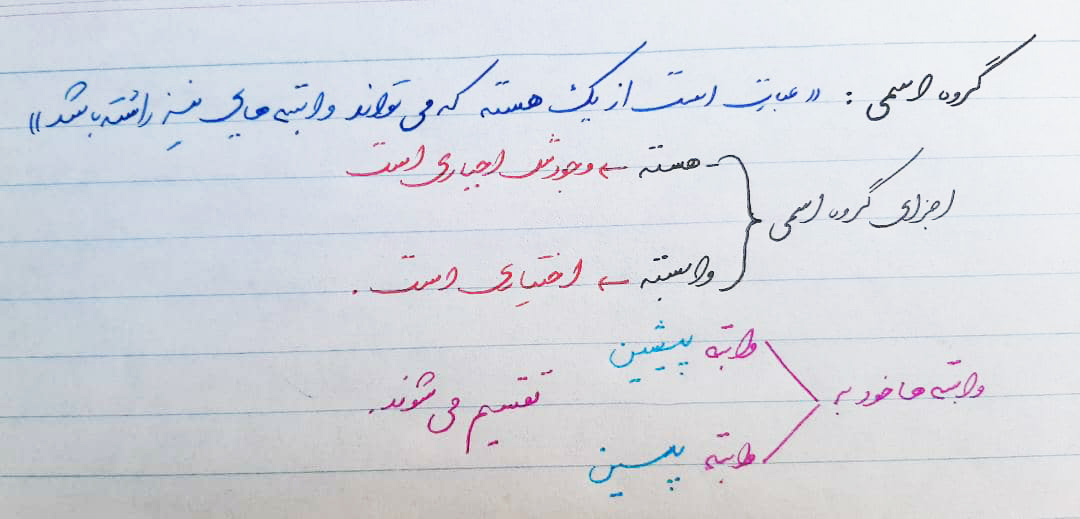 گروه اسمی : «عبارت است از یک هسته که می تواند وابسته هایی نیز داشته باشد»
هسته ← وجودش اجباری است
اجزای گروه اسمی
وابسته ← اختیاری است .
وابسته پیشین
وابسته ها خود به
تقسیم می شوند.
وابسته پسین